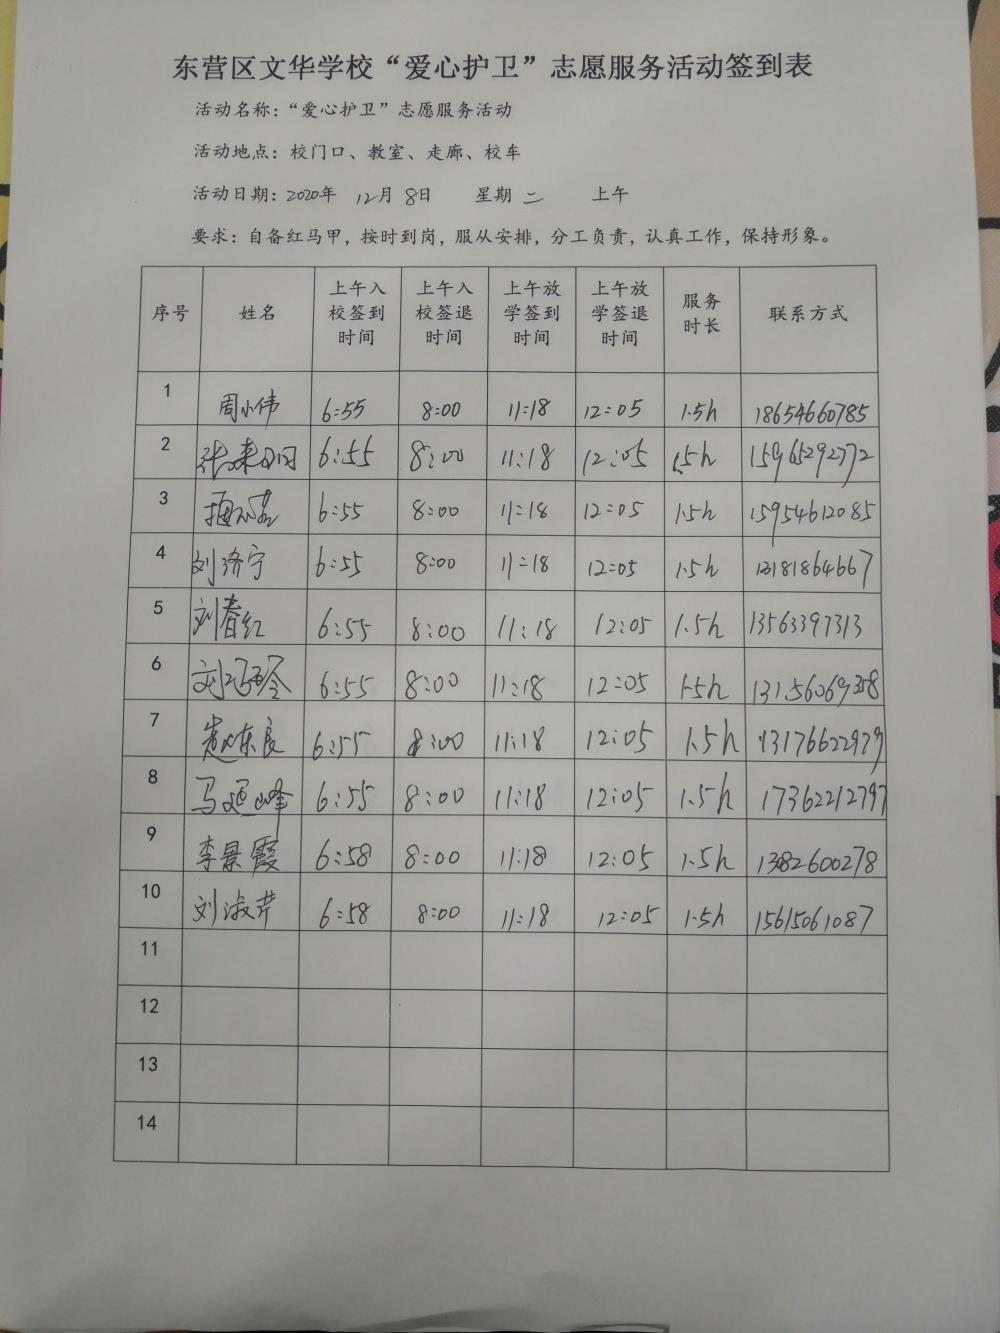 东营区文华学校“爱心护卫”志愿服务活动签到表
活动名称：“爱心护卫”志愿服务活动
活动地点：校门口、教室、走廊、校车
活动日期：2020年 12月 8日 星期 二 上午
要求：自备红马甲，按时到岗，服从安排，分工负责，认真工作，保持形象。
序号 姓名 上午入校签到时间 上午入校签退时间 上午放学签到时间 上午放学签退时间 服务时长 联系方式
1 周小伟 6:55 8:00 11:18 12:05 1.5h 18654660785
2 6:55 8:00 11:18 12:05 1.5h 15965292772
3 6:55 8:00 11:18 12:05 1.5h 15954612085
4 刘济宁 6:55 8:00 11:18 12:05 1.5h 13181864667
5 刘春红 6:55 8:00 11:18 12:05 1.5h 13563397313
6 6:55 8:00 11:18 12:05 1.5h
7 赵东良 6:55 8:00 11:18 12:05 1.5h 13176622979
8 马延峰 6:55 8:00 11:18 12:05 1.5h 17362212797
9 李景霞 6:58 8:00 11:18 12:05 1.5h
10 刘淑芹 6:58 8:00 11:18 12:05 1.5h 15615061087
11
12
13
14